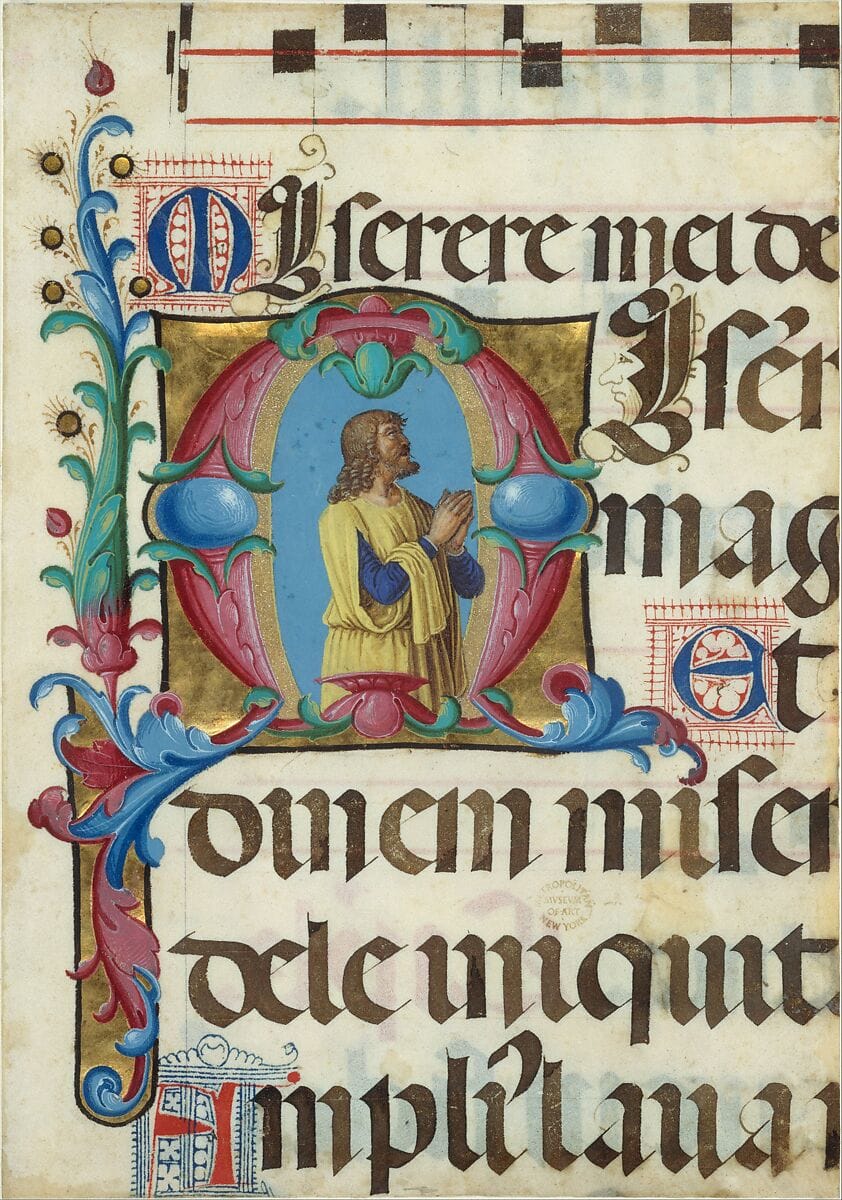 MIserere mei de
MIsér
mag
Et
dinem miser
dele iniquit
Ampli' laua
METROPOLITAN
MVSEVM
OF ART
NEW YORK